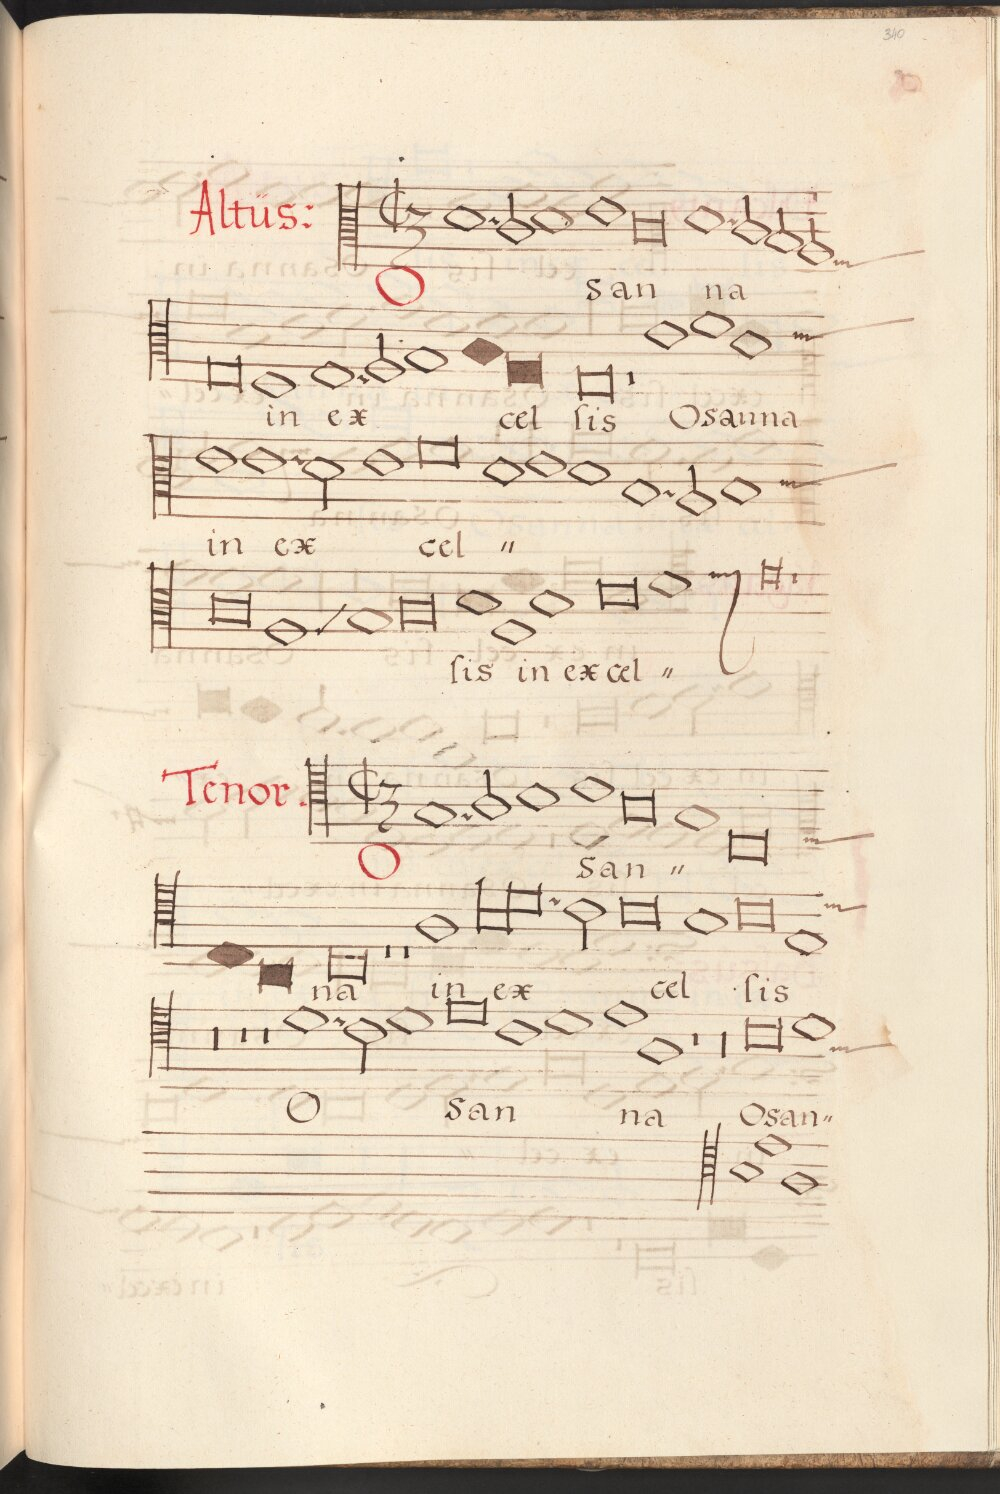 340
Altüs:
O san na
in ex cel sis Osanna
in ex cel "
sis in excel "
Tenor.
O san "
na in ex cel sis
O san na Osan"